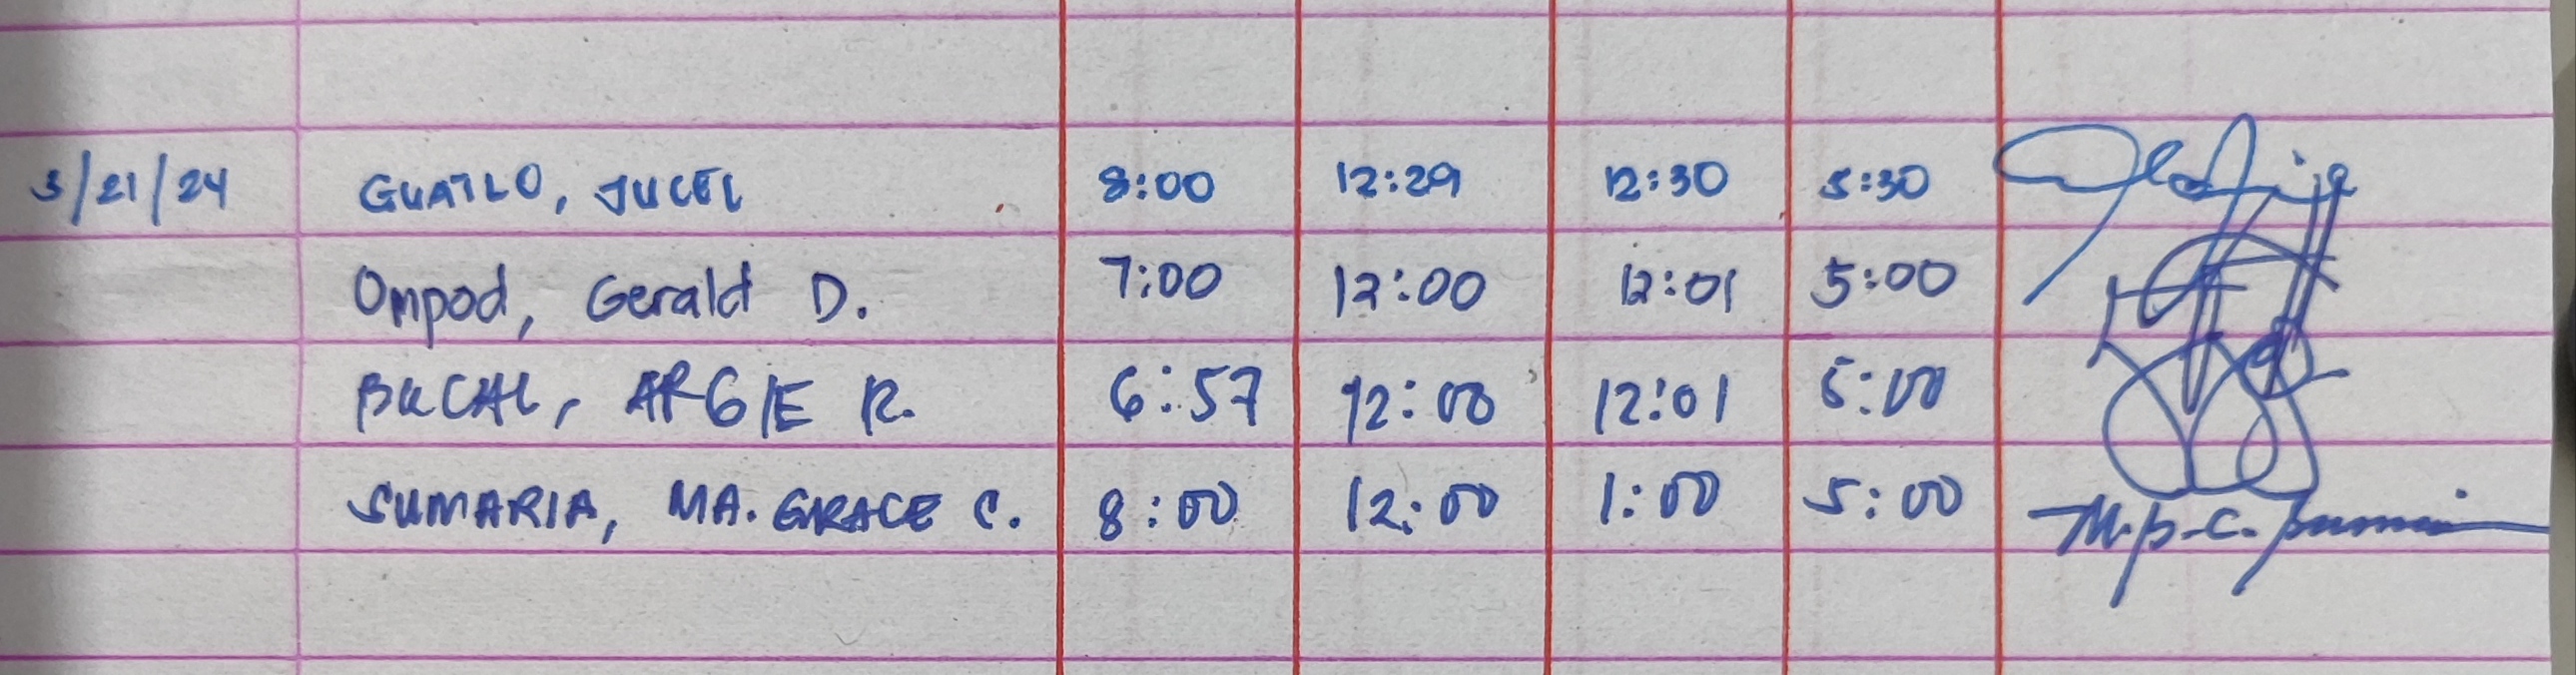 3/21/24 GUATLO, JUCEL 8:00 12:29 12:30 5:30
Ompod, Gerald D. 7:00 12:00 12:01 5:00
BUCAL, ARGIE R. 6:57 12:00 12:01 5:00
SUMARIA, MA. GRACE C. 8:00 12:00 1:00 5:00